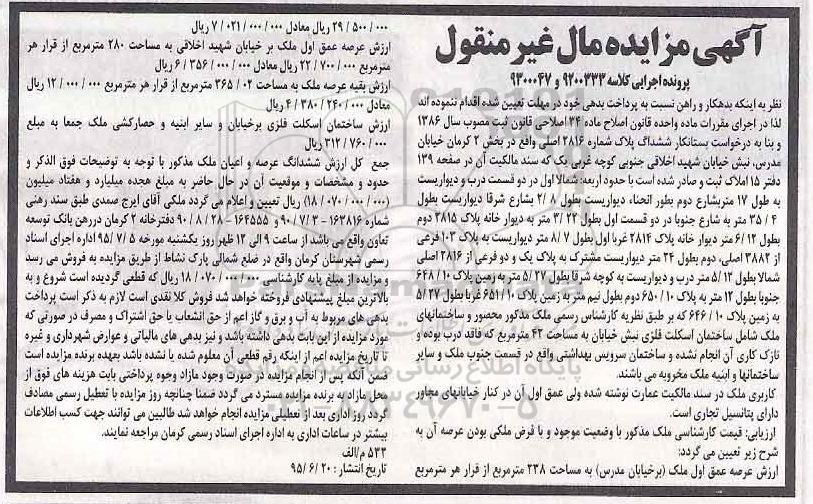 آگهی مزایده مال غیر منقول
پرونده اجرایی کلاسه ۹۲۰۰۳۳۳ و ۹۳۰۰۰۴۷
نظر به اینکه بدهکار و راهن نسبت به پرداخت بدهی خود در مهلت تعیین شده اقدام ننموده اند
لذا در اجرای مقررات ماده واحده قانون اصلاح ماده ۳۴ اصلاحی قانون ثبت مصوب سال ۱۳۸۶
و بنا به درخواست بستانکار ششداگ پلاک شماره ۲۸۱۶ اصلی واقع در بخش ۲ کرمان خیابان
مدرس، نبش خیابان شهید اخلاقی جنوبی کوچه غربی یک که سند مالکیت آن در صفحه ۱۳۹
دفتر ۱۵ املاک ثبت و صادر شده است با حدود اربعه شمالا اول در دو قسمت درب و دیواریست
به طول ۱۷ متر بشارع دوم بطور انحناء دیواریست بطول ۲/۸ بشارع شرقا دیواریست بطول
۳۵/۴ متر به شارع جنوبا در دو قسمت اول بطول ۳/۲۳ متر به دیوار خانه پلاک ۲۸۱۵ دوم
بطول ۶/۱۲ متر دیوار خانه پلاک ۲۸۱۴ غربا اول بطول ۸/۷ متر دیواریست به پلاک ۱۰۳ فرعی
از ۳۸۸۲ اصلی، دوم بطول ۲۴ متر دیواریست مشترک به پلاک یک و دو فرعی از ۲۸۱۶ اصلی
شمالا بطول ۵/۱۲ متر درب و دیواریست به کوچه شرقا بطول ۵/۲۷ متر به زمین پلاک ۶۴۸/۱۰
جنوبا بطول ۱۲ متر به پلاک ۶۵۰/۱۰ دوم بطول نیم متر به زمین پلاک ۶۵۱/۱۰ غربا بطول ۵/۲۷
به زمین پلاک ۶۴۶/۱۰ که بر طبق نظریه کارشناس رسمی ملک مذکور محصور و ساختمانهای
ملک شامل ساختمان اسکلت فلزی نبش خیابان به مساحت ۴۲ مترمربع که فاقد درب بوده و
نازک کاری آن انجام نشده و ساختمان سرویس بهداشتی واقع در قسمت جنوب ملک و سایر
ساختمانها و ابنیه ملک مخروبه می باشند.
کاربری ملک در سند مالکیت عمارت نوشته شده ولی عمق اول آن در کنار خیابانهای مجاور
دارای پتانسیل تجاری است.
ارزیابی: قیمت کارشناسی ملک مذکور با وضعیت موجود و با فرض ملکی بودن عرصه آن به
شرح زیر تعیین می گردد:
ارزش عرصه عمق اول ملک (برخیابان مدرس) به مساحت ۲۳۸ مترمربع از قرار هر مترمربع
۲۹/۵۰۰/۰۰۰ ریال معادل ۷/۰۲۱/۰۰۰/۰۰۰ ریال
ارزش عرصه عمق اول ملک بر خیابان شهید اخلاقی به مساحت ۲۸۰ مترمربع از قرار هر
مترمربع ۲۲/۷۰۰/۰۰۰ ریال معادل ۶/۳۵۶/۰۰۰/۰۰۰ ریال
ارزش بقیه عرصه ملک به مساحت ۳۶۵/۰۲ مترمربع از قرار هر مترمربع ۱۲/۰۰۰/۰۰۰ ریال
معادل ۴/۳۸۰/۲۴۰/۰۰۰ ریال
ارزش ساختمان اسکلت فلزی برخیابان و سایر ابنیه و حصارکشی ملک جمعا به مبلغ
۳۱۲/۷۶۰/۰۰۰ ریال
جمع کل ارزش ششدانگ عرصه و اعیان ملک مذکور با توجه به توضیحات فوق الذکر و
حدود و مشخصات و موقعیت آن در حال حاضر به مبلغ هجده میلیارد و هفتاد میلیون
(۱۸/۰۷۰/۰۰۰/۰۰۰) ریال تعیین و اعلام می گردد ملکی آقای ایرج صمدی طبق سند رهنی
شماره ۱۶۳۸۱۶ - ۹۰/۷/۳ و ۱۶۴۵۵۵ - ۹۰/۸/۲۸ دفترخانه ۲ کرمان در رهن بانک توسعه
تعاون واقع می باشد از ساعت ۹ الی ۱۲ ظهر روز یکشنبه مورخه ۹۵/۷/۵ اداره اجرای اسناد
رسمی شهرستان کرمان واقع در ضلع شمالی پارک نشاط از طریق مزایده به فروش می رسد
و مزایده از مبلغ پایه کارشناسی ۱۸/۰۷۰/۰۰۰/۰۰۰ ریال که قطعی گردیده است شروع و به
بالاترین مبلغ پیشنهادی فروخته خواهد شد فروش کلا نقدی است لازم به ذکر است پرداخت
بدهی های مربوط به آب و برق و گاز اعم از حق انشعاب یا حق اشتراک و مصرف در صورتی که
مورد مزایده از این بابت بدهی داشته باشد و نیز بدهی های مالیاتی و عوارض شهرداری و غیره
تا تاریخ مزایده اعم از اینکه رقم قطعی آن معلوم شده یا نشده باشد بعهده برنده مزایده است
ضمن آنکه پس از انجام مزایده در صورت وجود مازاد وجوه پرداختی بابت هزینه های فوق از
محل مازاد به برنده مزایده مسترد می گردد ضمنا چنانچه روز مزایده با تعطیل رسمی مصادف
گردد روز اداری بعد از تعطیلی مزایده انجام خواهد شد طالبین می توانند جهت کسب اطلاعات
بیشتر در ساعات اداری به اداره اجرای اسناد رسمی کرمان مراجعه نمایند.
۵۳۳ م/الف
تاریخ انتشار: ۹۵/۶/۲۰
پایگاه اطلاع رسانی